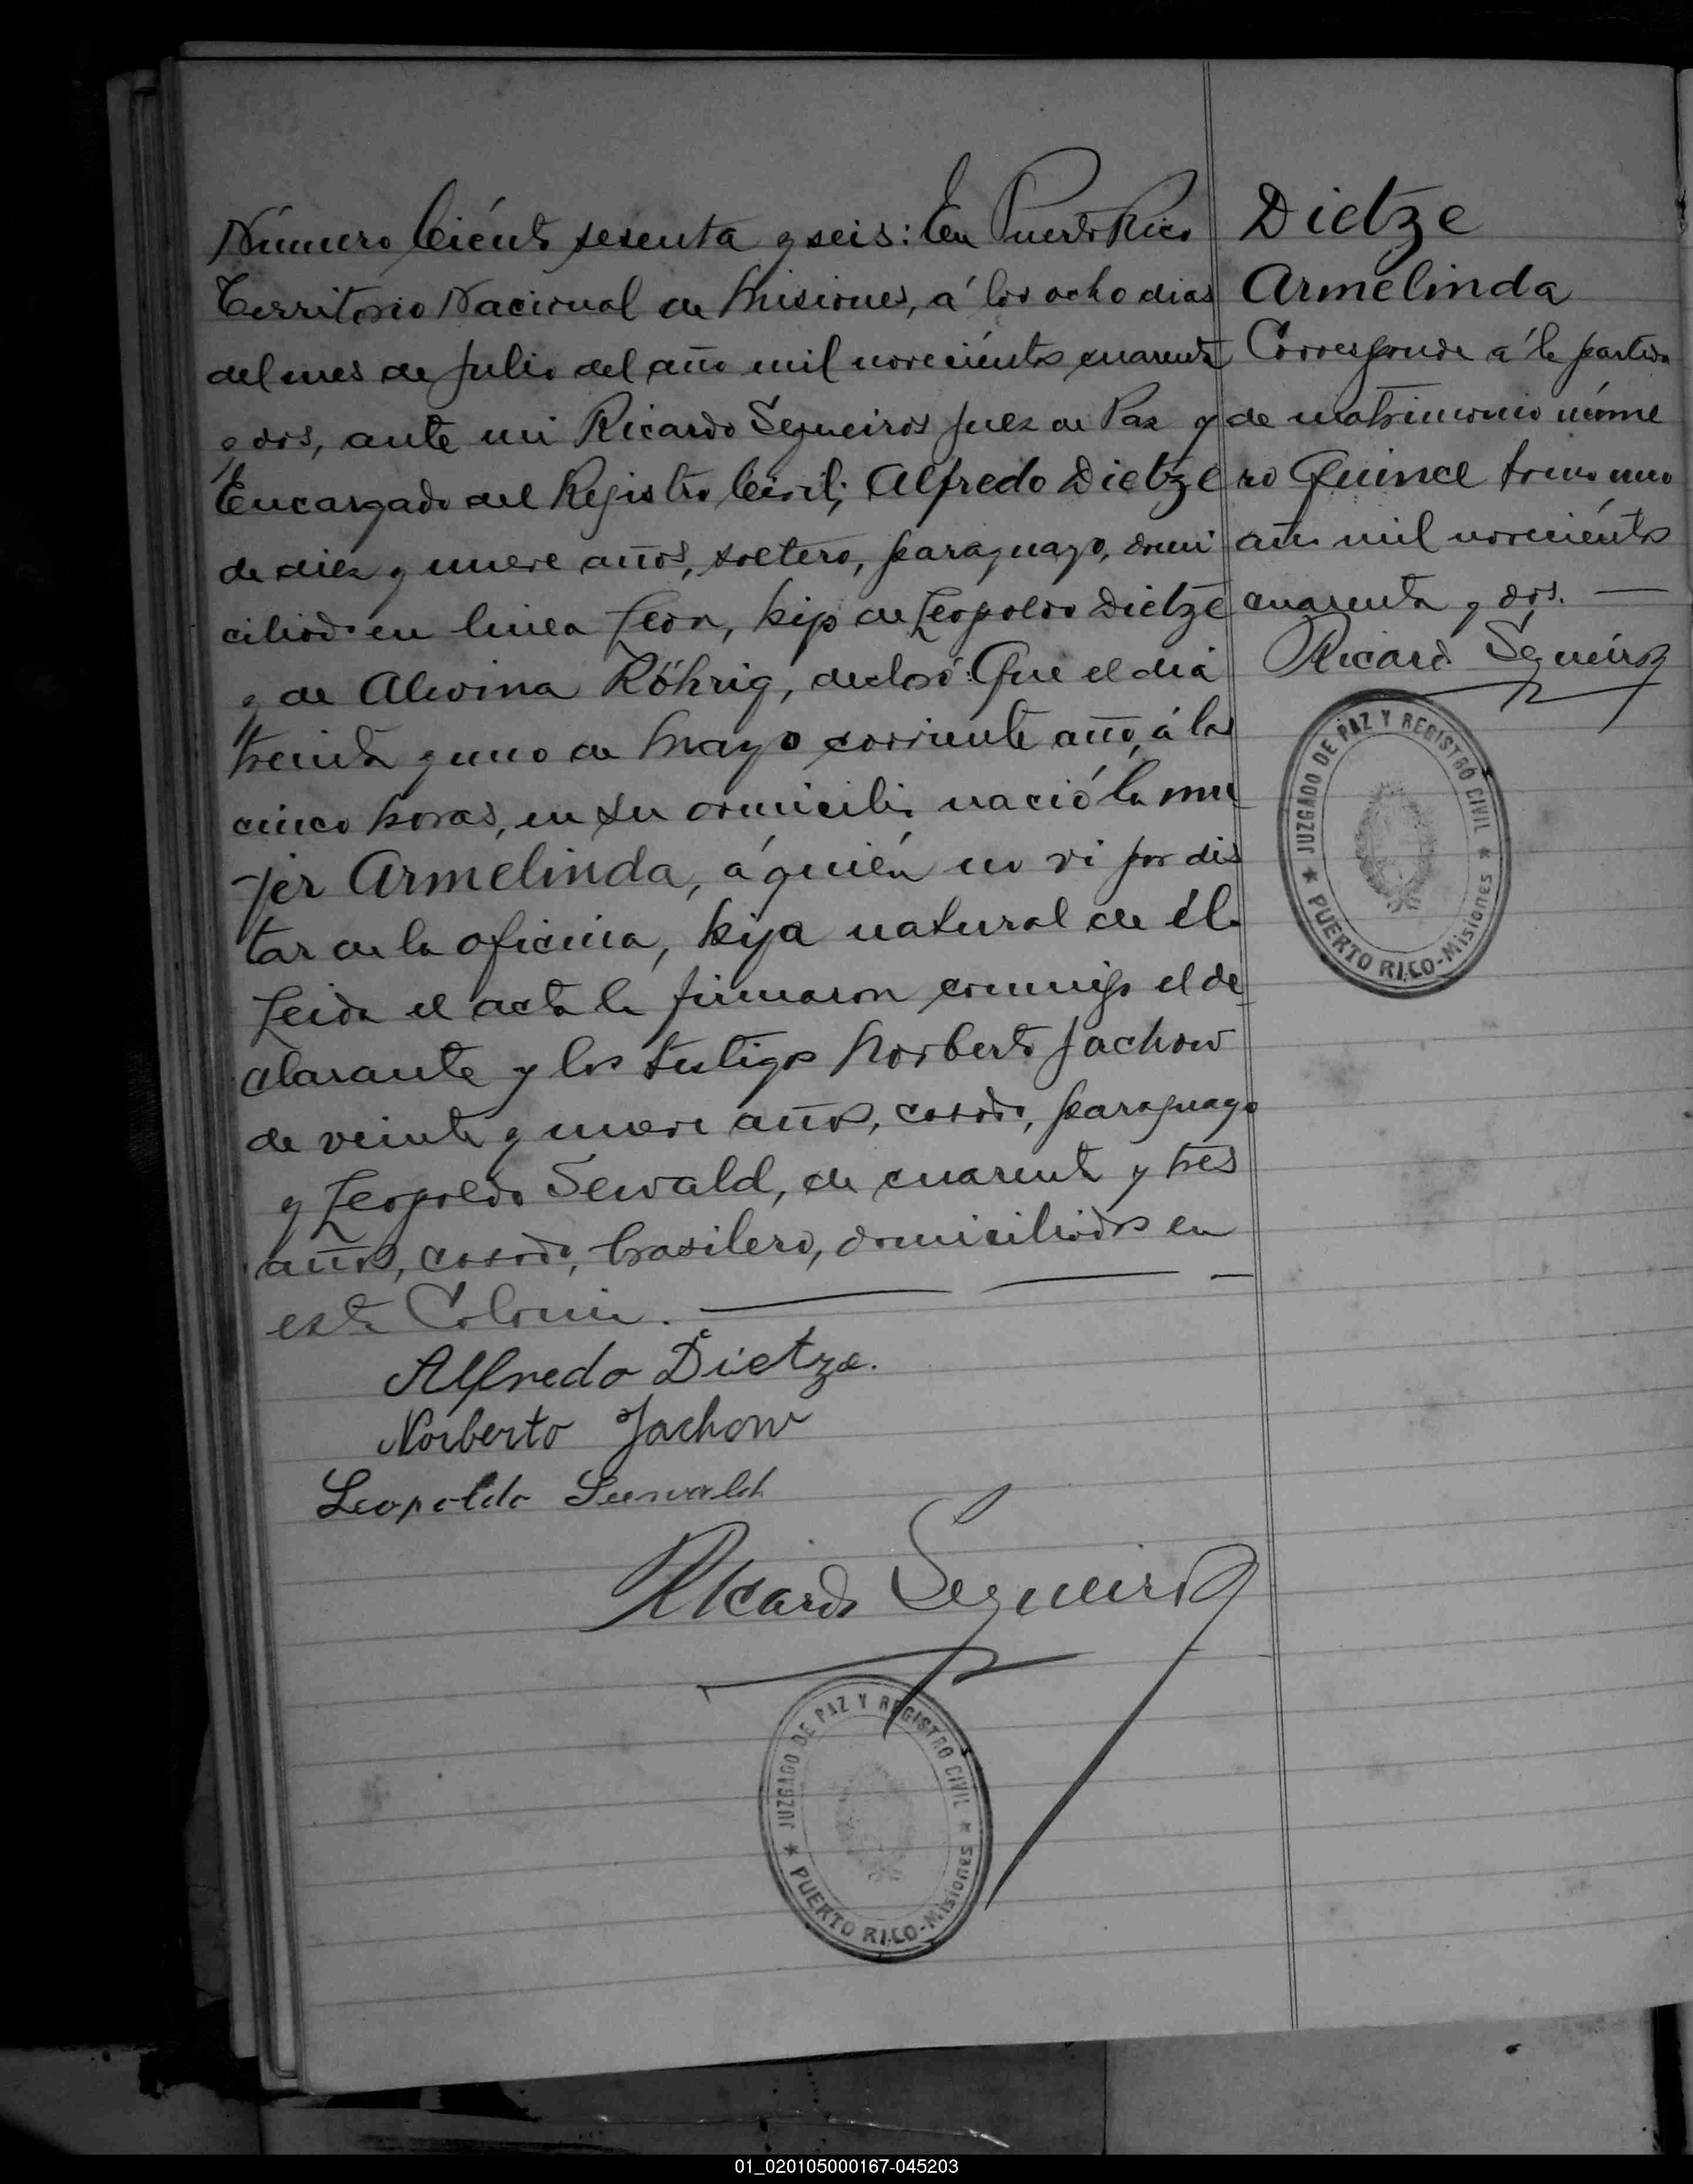 Número Ciento sesenta y seis: En Puerto Rico
Territorio Nacional de Misiones, á los ocho dias
del mes de Julio del año mil novecientos cuarenta
y dos, ante mi Ricardo Sequeiros Juez de Paz y
Encargado del Registro Civil; Alfredo Dietze
de diez y nueve años, soltero, paraguayo, domi
ciliado en linea León, hijo de Leopoldo Dietze
y de Alwina Röhrig, declaró: Que el dia
treinta y uno de Mayo corriente año, á las
cinco horas, en su domicilio nació la mu
jer Armelinda, á quién no vi por dis
tar de la oficina, hija natural de él.
Leida el acta la firmaron conmigo el de
clarante y los testigos Norberto Jachow
de veinte y nueve años, casado, paraguayo
y Leopoldo Sewald, de cuarenta y tres
años, casado, brasilero, domiciliados en
esta Colonia.
Alfredo Dietze.
Norberto Jachow
Leopoldo Seewald
Ricardo Sequeiros
JUZGADO DE PAZ Y REGISTRO CIVIL
★ PUERTO RICO-Misiones ★
Dietze
Armelinda
Corresponde á la partida
de matrimonio núme
ro Quince tomo uno
año mil novecientos
cuarenta y dos.
Ricardo Sequeiros
JUZGADO DE PAZ Y REGISTRO CIVIL
★ PUERTO RICO-Misiones ★
01_020105000167-045203